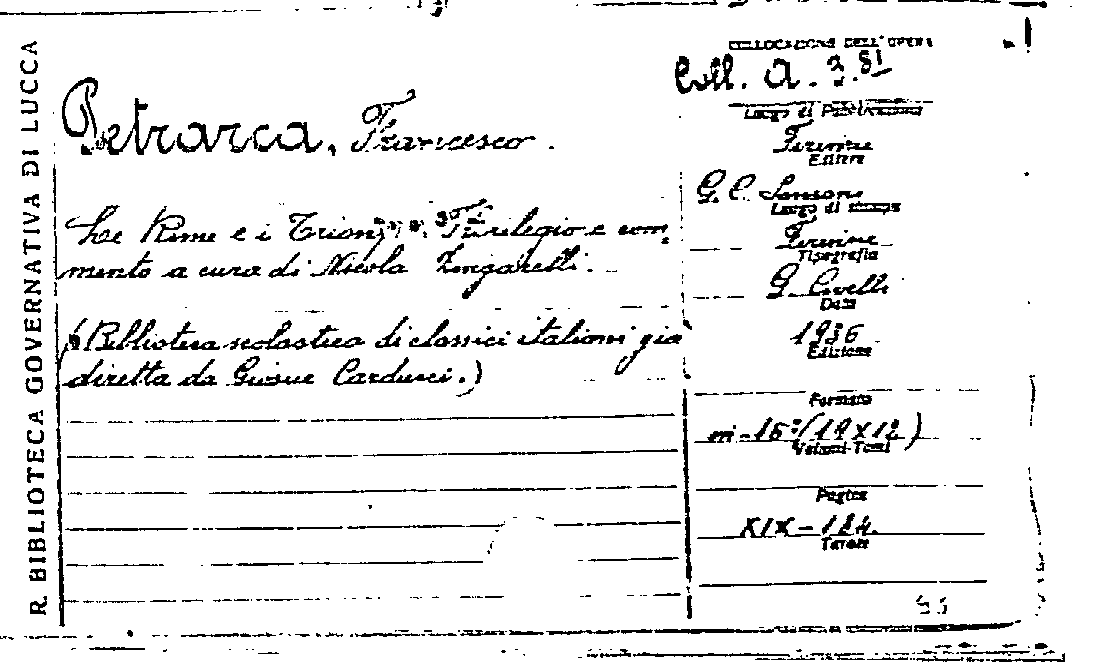 R. BIBLIOTECA GOVERNATIVA DI LUCCA
COLLOCAZIONE DELL'OPERA
Coll. A. 3. 81
Petrarca, Francesco.
Luogo di Pubblicazione
Firenze
Editore
G. C. Sansoni
Luogo di stampa
Firenze
Tipografia
G. Civelli
Data
1936
Edizione
Le Rime e i Trionfi. Florilegio e com-
mento a cura di Nicola Zingarelli.
(Biblioteca scolastica di classici italiani già
diretta da Giosue Carducci.)
Formato
in-16° (19x12)
Volumi-Tomi
Pagine
XIX-184.
Tavole